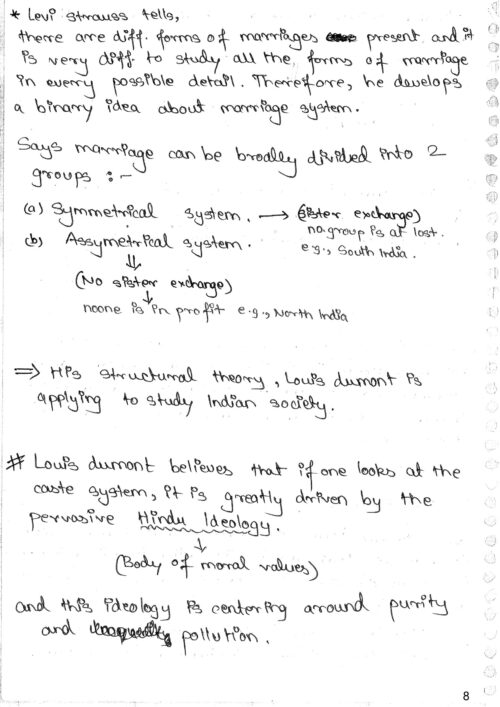 * Levi strauss tells,
there are diff. forms of marriages present and it
is very diff. to study all the forms of marriage
in every possible detail. Therefore, he develops
a binary idea about marriage system.
Says marriage can be broadly divided into 2
groups :-
(a) Symmetrical system. → (sister exchange)
no group is at lost.
e.g., South India.
(b) Assymetrical system.
⇓
(No sister exchange)
↓
noone is in profit e.g., North India
⇒ His structural theory, Louis dumont is
applying to study Indian society.
# Louis dumont believes that if one looks at the
caste system, it is greatly driven by the
pervasive Hindu Ideology.
↓
(Body of moral values)
and this ideology is centering around purity
and pollution.
8